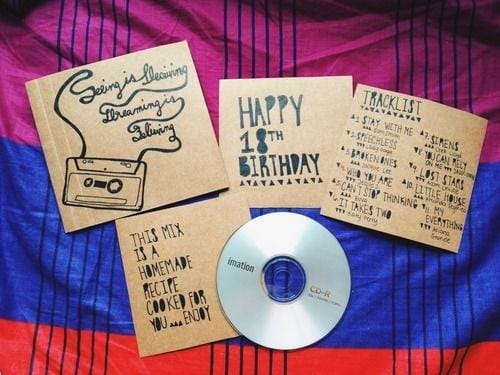 Seeing is Hearing
Dreaming is
Believing
HAPPY
18TH
BIRTHDAY
TRACKLIST
1. STAY WITH ME
2. SPEECHLESS
Lady Gaga
3. BROKEN ONES
4. WHO YOU ARE
5. CAN'T STOP THINKING
6. IT TAKES TWO
Katy Perry
7. SIRENS
8. YOU CAN RELY
ON ME
9. LOST STARS
10. LITTLE HOUSE
11. MY
EVERYTHING
Ariana
Grande
THIS MIX
IS A
HOMEMADE
RECIPE
COOKED FOR
YOU ... ENJOY
imation
CD-R